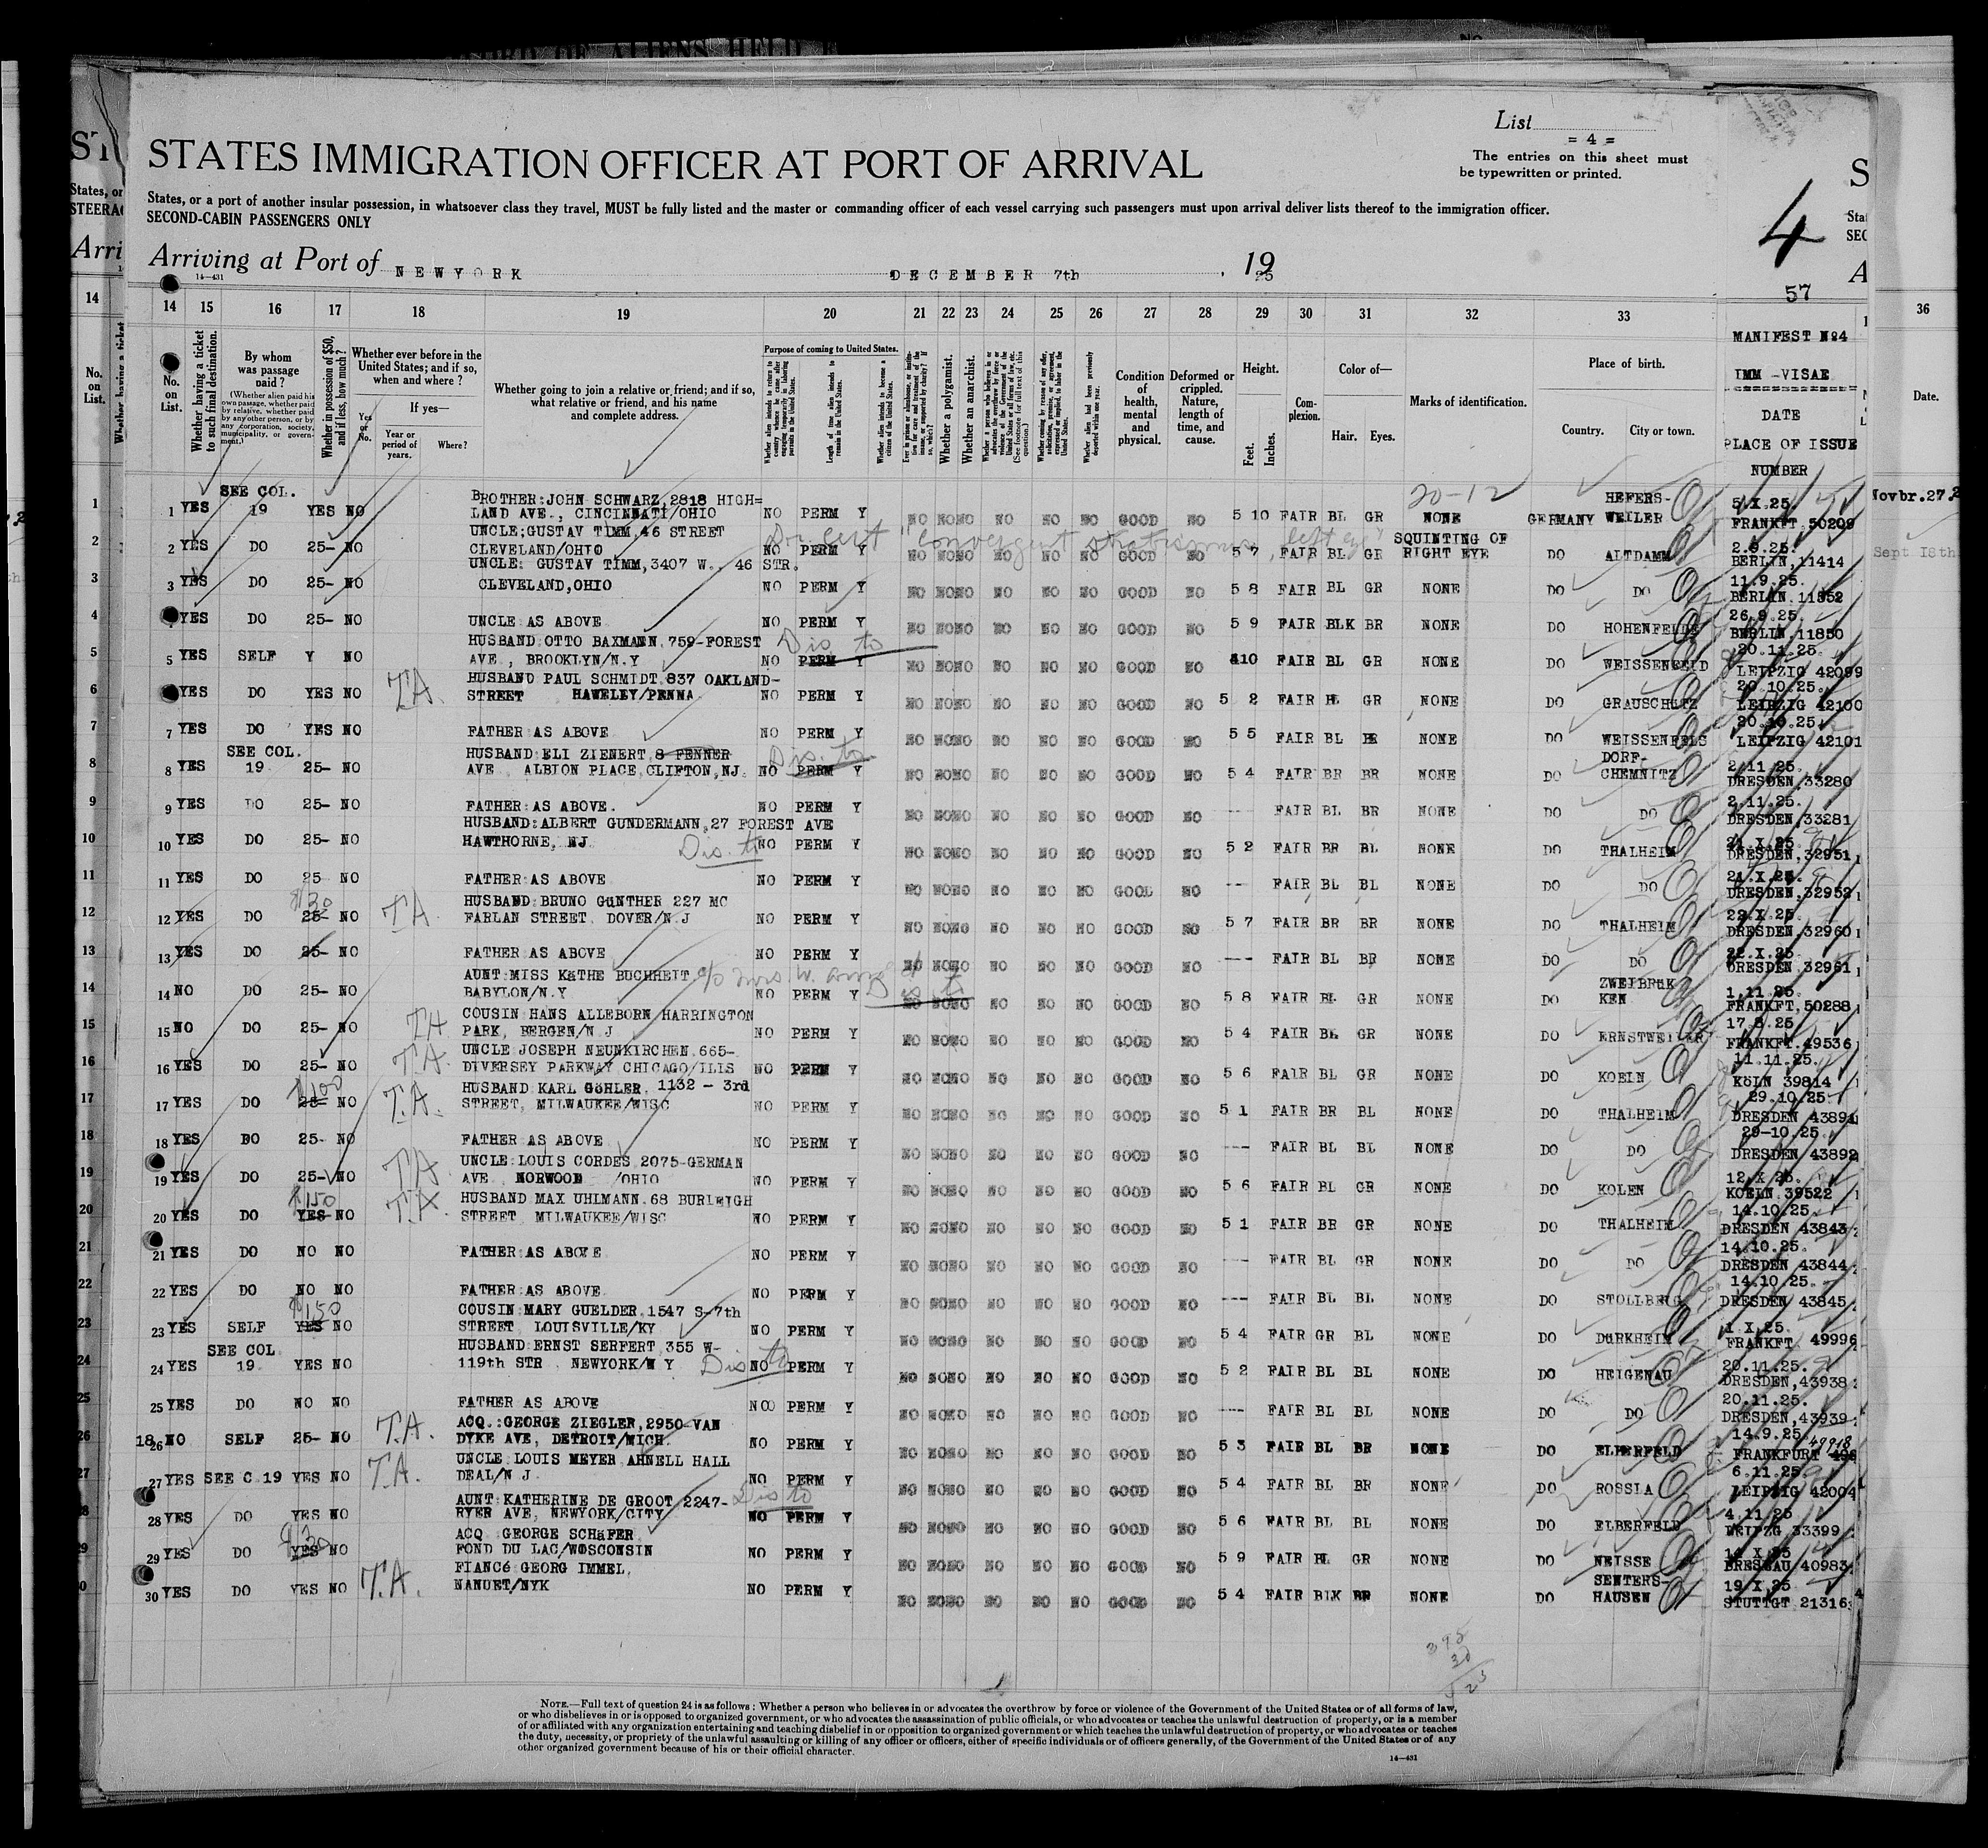 List
= 4 =
STATES IMMIGRATION OFFICER AT PORT OF ARRIVAL
The entries on this sheet must
be typewritten or printed.
States, or a port of another insular possession, in whatsoever class they travel, MUST be fully listed and the master or commanding officer of each vessel carrying such passengers must upon arrival deliver lists thereof to the immigration officer.
SECOND-CABIN PASSENGERS ONLY
4
Arriving at Port of NEWYORK DECEMBER 7th , 1925
14-431
57
14 15 16 17 18 19 20 21 22 23 24 25 26 27 28 29 30 31 32 33 36
No. on List.
Whether having a ticket to such final destination.
By whom was passage paid?
(Whether alien paid his own passage, whether paid by relative, whether paid by any other person, or by any corporation, society, municipality, or government.)
Whether in possession of $50, and if less, how much?
Whether ever before in the United States; and if so, when and where?
Yes or No.
If yes—
Year or period of years.
Where?
Whether going to join a relative or friend; and if so, what relative or friend, and his name and complete address.
Purpose of coming to United States.
Length of time alien intends to remain in the United States.
Whether alien intends to become a citizen of the United States.
Whether a polygamist.
Whether an anarchist.
Condition of health, mental and physical.
Deformed or crippled. Nature, length of time, and cause.
Height.
Feet. Inches.
Complexion.
Color of—
Hair. Eyes.
Marks of identification.
Place of birth.
Country. City or town.
MANIFEST №4
IMM -VISAE
DATE
PLACE OF ISSUE
NUMBER
Date.
SEE COL. BROTHER:JOHN SCHWARZ,2818 HIGH= 20-12 HEFERS- 5.X.25.
1 YES 19 YES NO LAND AVE., CINCINNATI/OHIO NO PERM Y NO NO NO NO NO NO GOOD NO 5 10 FAIR BL GR NONE GERMANY WEILER FRANKFT.50209
Novbr.27,2
UNCLE;GUSTAV TIMM,46 STREET SQUINTING OF 2.9.25.
2 YES DO 25- NO CLEVELAND/OHIO NO PERM Y NO NO NO NO NO NO GOOD NO 5 7 FAIR BL GR RIGHT EYE DO ALTDAMM BERLIN,11414
Sept 18th
UNCLE: GUSTAV TIMM,3407 W., 46 STR. 11.9.25.
3 YES DO 25- NO CLEVELAND,OHIO NO PERM Y NO NO NO NO NO NO GOOD NO 5 8 FAIR BL GR NONE DO DO BERLIN.11852
26.9.25.
4 YES DO 25- NO UNCLE AS ABOVE NO PERM Y NO NO NO NO NO NO GOOD NO 5 9 FAIR BLK BR NONE DO HOHENFELDE BERLIN.11850
HUSBAND:OTTO BAXMANN.759-FOREST Dis. to 20.11.25.
5 YES SELF Y NO AVE., BROOKLYN/N.Y NO PERM Y NO NO NO NO NO NO GOOD NO 410 FAIR BL GR NONE DO LEIPZIG 42099
HUSBAND PAUL SCHMIDT.837 OAKLAND- 20.10.25.
6 YES DO YES NO T.A. STREET HAWELEY/PENNA. NO PERM Y NO NO NO NO NO NO GOOD NO 5 2 FAIR GR NONE DO GRAUSCHUTZ LEIPZIG 42100
20.10.25.
7 YES DO YES NO FATHER AS ABOVE NO PERM Y NO NO NO NO NO NO GOOD NO 5 5 FAIR BL BR NONE DO WEISSENFELS LEIPZIG 42101
SEE COL. HUSBAND:ELI ZIENERT 8 FENNER Dis. to DORF- 2.11.25.
8 YES 19 25- NO AVE ALBION PLACE,CLIFTON,NJ. NO PERM Y NO NO NO NO NO NO GOOD NO 5 4 FAIR BR BR NONE DO CHEMNITZ DRESDEN,33280
2.11.25.
9 YES DO 25- NO FATHER:AS ABOVE. NO PERM Y NO NO NO NO NO NO GOOD NO --- FAIR BL BR NONE DO DO DRESDEN,33281
HUSBAND:ALBERT GUNDERMANN,27 FOREST AVE
10 YES DO 25- NO HAWTHORNE, NJ. Dis. to NO PERM Y NO NO NO NO NO NO GOOD NO 5 2 FAIR BR BL NONE DO THALHEIM DRESDEN,32951
21.X.25.
11 YES DO 25 NO FATHER:AS ABOVE NO PERM Y NO NO NO NO NO NO GOOD NO -- FAIR BL BL NONE DO DO DRESDEN,32952
$30 HUSBAND:BRUNO GüNTHER 227 MC 22.X.25.
12 YES DO 25- NO T.A. FARLAN STREET DOVER/N.J NO PERM Y NO NO NO NO NO NO GOOD NO 5 7 FAIR BR BR NONE DO THALHEIM DRESDEN,32960
22.X.25.
13 YES DO 25- NO FATHER:AS ABOVE NO PERM Y NO NO NO NO NO NO GOOD NO --- FAIR BL BR NONE DO DO DRESDEN 32961
AUNT:MISS KäTHE BUCHHEIT c/o Mrs. W. Dis to ZWEIBRüK 1.11.25.
14 NO DO 25- NO BABYLON/N.Y NO PERM Y NO NO NO NO NO NO GOOD NO 5 8 FAIR BL GR NONE DO KEN FRANKFT.50288
COUSIN HANS ALLEBORN HARRINGTON 17.8.25.
15 NO DO 25- NO T.A. PARK, BERGEN/N J NO PERM Y NO NO NO NO NO NO GOOD NO 5 4 FAIR BL GR NONE DO ERNSTWEILER FRANKFT.49536
UNCLE JOSEPH NEUNKIRCHEN 665- 11.11.25.
16 YES DO 25- NO T.A. DIVERSEY PARKWAY CHICAGO/ILIS NO PERM Y NO NO NO NO NO NO GOOD NO 5 6 FAIR BL GR NONE DO KOELN KöLN 39814
$100 HUSBAND KARL GöHLER. 1132 - 3rd 29.10.25.
17 YES DO 25- NO T.A. STREET, MILWAUKEE/WISC NO PERM Y NO NO NO NO NO NO GOOD NO 5 1 FAIR BR BL NONE DO THALHEIM DRESDEN 43891
29-10.25.
18 YES DO 25- NO FATHER AS ABOVE NO PERM Y NO NO NO NO NO NO GOOD NO --- FAIR BL BL NONE DO DO DRESDEN 43892
UNCLE:LOUIS CORDES.2075-GERMAN 12.X.25.
19 YES DO 25- NO T.A. AVE NORWOOD /OHIO NO PERM Y NO NO NO NO NO NO GOOD NO 5 6 FAIR BL GR NONE DO KOLEN KOELN 39522
$150 HUSBAND MAX UHLMANN.68 BURLEIGH 14.10.25.
20 YES DO YES NO T.A. STREET MILWAUKEE/WISC NO PERM Y NO NO NO NO NO NO GOOD NO 5 1 FAIR BR GR NONE DO THALHEIM DRESDEN 43843
14.10.25.
21 YES DO NO NO FATHER:AS ABOVE NO PERM Y NO NO NO NO NO NO GOOD NO --- FAIR BL GR NONE DO DO DRESDEN 43844
14.10.25.
22 YES DO NO NO FATHER:AS ABOVE. NO PERM Y NO NO NO NO NO NO GOOD NO --- FAIR BL BL NONE DO STOLLBERG DRESDEN 43845
$150 COUSIN:MARY GUELDER.1547 S-7th 1 X.25.
23 YES SELF YES NO STREET LOUISVILLE/KY NO PERM Y NO NO NO NO NO NO GOOD NO 5 4 FAIR GR BL NONE DO DüRKHEIM FRANKFT 49996
SEE COL HUSBAND:ERNST SERFERT 355 W- 20.11.25.
24 YES 19 YES NO 119th STR NEWYORK/N Y Dis to NO PERM Y NO NO NO NO NO NO GOOD NO 5 2 FAIR BL BL NONE DO HEIGENAU DRESDEN,43938
20.11.25.
25 YES DO NO NO FATHER AS ABOVE NO PERM Y NO NO NO NO NO NO GOOD NO --- FAIR BL BL NONE DO DO DRESDEN,43939
ACQ.:GEORGE ZIEGLER,2950-VAN 14.9.25. 49918
26 NO SELF 25- NO T.A. DYKE AVE, DETROIT/MICH. NO PERM Y NO NO NO NO NO NO GOOD NO 5 3 FAIR BL BR NONE DO ELBERFELD FRANKFURT
UNCLE LOUIS MEYER ARNELL HALL 6.11.25.
27 YES SEE C.19 YES NO T.A. DEAL/N J. NO PERM Y NO NO NO NO NO NO GOOD NO 5 4 FAIR BL BR NONE DO ROSSLA LEIPZIG 42004
AUNT:KATHERINE DE GROOT 2247- Dis to 4.11.25
28 YES DO YES NO RYER AVE, NEWYORK/CITY NO PERM Y NO NO NO NO NO NO GOOD NO 5 6 FAIR BL BL NONE DO ELBERFELD LEIPZG 33399
$30 ACQ GEORGE SCHäFER 14 X.25
29 YES DO YES NO FOND DU LAC/WOSCONSIN NO PERM Y NO NO NO NO NO NO GOOD NO 5 9 FAIR GR NONE DO NEISSE BRESLAU 40983
FIANCé GEORG IMMEL, SENTERS- 19 X.25
30 YES DO YES NO T.A. NANUET/NYK NO PERM Y NO NO NO NO NO NO GOOD NO 5 4 FAIR BLK BR NONE DO HAUSEN STUTTGT 21316
NOTE.—Full text of question 24 is as follows: Whether a person who believes in or advocates the overthrow by force or violence of the Government of the United States or of all forms of law,
or who disbelieves in or is opposed to organized government, or who advocates the assassination of public officials, or who advocates or teaches the unlawful destruction of property, or is a member
of or affiliated with any organization entertaining and teaching disbelief in or opposition to organized government or which teaches the unlawful destruction of property, or who advocates or teaches
the duty, necessity, or propriety of the unlawful assaulting or killing of any officer or officers, either of specific individuals or of officers generally, of the Government of the United States or of any
other organized government because of his or their official character.
14-431